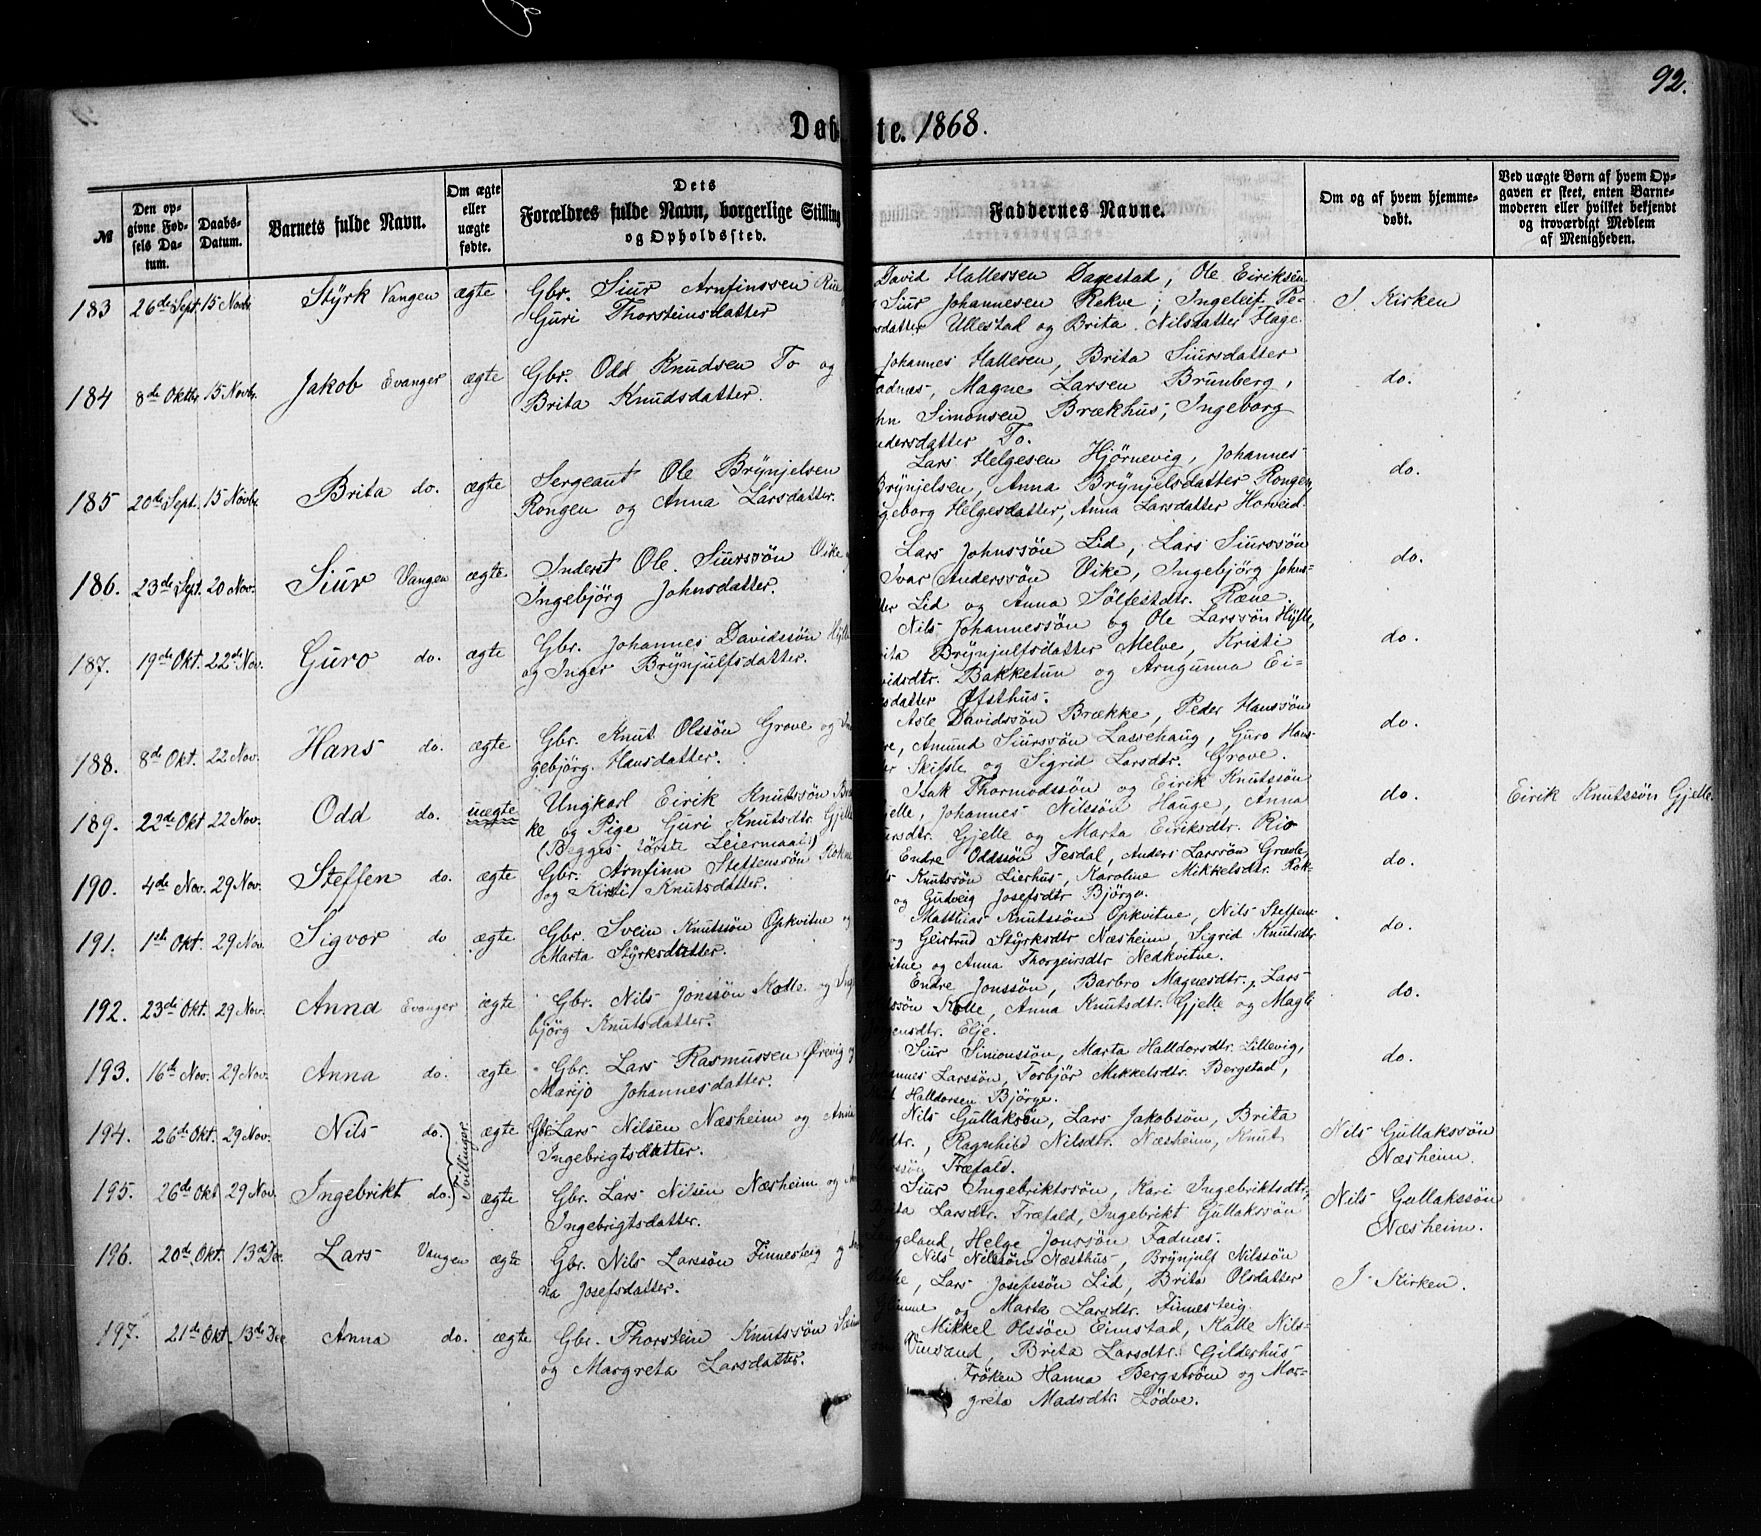 92.
Døbte. 1868.
№
Den opgivne Fødsels Datum.
Daabs-Datum.
Barnets fulde Navn.
Om ægte eller uægte fødte.
Dets Forældres fulde Navn, borgerlige Stilling og Opholdssted.
Faddernes Navne.
Om og af hvem hjemmedøbt.
Ved uægte Børn af hvem Opgaven er skeet, enten Barnemoderen eller hvilket bekjendt og troværdigt Medlem af Menigheden.
183 26de Sept. 15 Novbr. Styrk Vangen ægte Gbr. Siur Arnfinssen
Guri Thorsteinsdatter
David Hallessen Dagestad, Ole Eiriksen
Siur Johannesen Rekve; Ingeleif Pe-
datter Ullestad og Brita Nilsdatter Flage.
I Kirken
184 8de Oktbr. 15 Novbr. Jakob Evanger ægte Gbr. Odd Knudsen To og
Brita Knudsdatter.
Johannes Hallesen, Brita Siursdatter
Fadnæs, Magne Larsen Brunberg,
Simonsen Brækhus; Ingeborg
dersdatter To.
do.
185 20de Sept. 15 Novbr. Brita do. ægte Sergeant Ole Brynjelsen
Rongen og Anna Larsdatter.
Lars Helgesen Hjørnevig, Johannes
Brynjelsen, Anna Brynjelsdatter Rongen,
geborg Helgesdatter, Anna Larsdatter Horveid.
do.
186. 23de Sept. 20 Nov. Siur Vangen ægte Inderst Ole Siurssøn Vike
Ingebjørg Johnsdatter.
Lars Johnssøn Lid, Lars Siurssøn
Ivar Anderssøn Vike, Ingebjørg Johns-
Lid og Anna Sølfestdtr. Ræne.
do.
187. 19de Okt. 22de Nov. Guro do. ægte Gbr. Johannes Davidssøn
og Inger Brynjulfsdatter.
Nils Johannessøn og Ole Larssøn Hylle,
Brita Brynjulfsdatter Melve, Kristi
vidsdtr. Bakketun og Arngunna Ei-
sdatter Øfsthus.
do.
188. 8de Okt. 22 Nov. Hans do. ægte Gbr. Knut Olssøn Grove og In
gebjørg Hansdatter.
Asle Davidssøn Brække, Peder Hanssøn
Amund Siurssøn Lassehaug, Guro Hans-
Skifsle og Sigrid Larsdtr. Grove.
do.
189. 22de Okt 22 Nov. Odd do. uægte Ungkarl Eirik Knutssøn
ke og Pige Guri Knutsdtr. Gjelle
(Begges 1ørste Leiermaal)
Isak Thormodssøn og Eirik Knutssøn
Gjelle, Johannes Nilssøn Hauge, Anna
ursdtr. Gjelle og Marta Eiriksdtr. Rio
do.
Eirik Knutssøn Gjelle.
190. 4de Nov. 29 Nov. Steffen do. ægte Gbr. Arnfinn Steffenssøn
og Kirsti Knutsdatter.
Endre Oddssøn Tesdal, Anders Larssøn Græe,
Knutssøn Lierhus, Karoline Mikkelsdtr. Rok-
og Gudveig Josefsdtr Bjørgo.
do.
191. 1ste Okt. 29 Nov. Sigvor do ægte Gbr. Svein Knutssøn Opkvitne og
Marta Styrksdatter.
Matthias Knutssøn Opkvitne, Nils Steffens-
og Geirtrud Styrksdtr Næsheim, Sigrid Knutsdtr
og Anna Thorgeirsdtr Nedkvitne.
do.
192. 23de Okt. 29 Nov. Anna Evanger ægte Gbr. Nils Jonssøn Kolle og Inge
bjørg Knutsdatter.
Endre Jonssøn, Barbro Magnesdtr., Lars-
søn Kolle, Anna Knutsdtr. Gjelle og Magli
ensdtr. Elje.
do.
193. 16de Nov. 29 Nov. Anna do. ægte Gbr. Lars Rasmussen Ørevig og
Marijo Johannesdatter.
Siur Simonssøn, Marta Halldorsdtr. Lillevig,
annes Larssøn, Torbjør Mikkelsdtr. Bergstad,
Halldorsen Bjørge.
do.
194. 26de Okt. 29 Nov. Nils do. Tvillinger ægte Gbr. Lars Nilsen Næsheim og Anna
Ingebrigtsdatter.
Nils Gullakssøn, Lars Jakobsøn, Brita
dtr., Ragnhild Nilsdtr. Næsheim, Knut
ssøn Træfald.
Nils Gullakssøn
Næsheim.
195. 26de Okt. 29 Nov. Ingebrikt do. ægte Gbr. Lars Nilsen Næsheim og
Ingebrigtsdatter.
Siur Ingebriktssøn, Kari Ingebriktsdtr,
Brita Larsdtr. Træfald, Ingebrikt Gullakssøn
Helge Jonssøn Fadnes.
Nils Gullakssøn
Næsheim.
196. 20de Okt. 13de Dec. Lars Vangen ægte Gbr. Nils Larssøn Finnesteig og
na Josefsdatter.
Nils Nilssøn Næsthus, Brynjulf Nilssøn
Lars Josefssøn Lid, Brita Olsdatter
og Marta Larsdtr. Finnesteig.
I Kirken.
197. 21de Okt. 13de Dec Anna do. ægte Gbr. Thorstein Knutssøn
og Margreta Larsdatter.
Mikkel Olssøn Eimstad, Kolle Nils-
Vinsand, Brita Larsdtr. Gilderhus
Frøken Hanna Bergstrøm og Mar-
greta Madsdtr. Lødve.